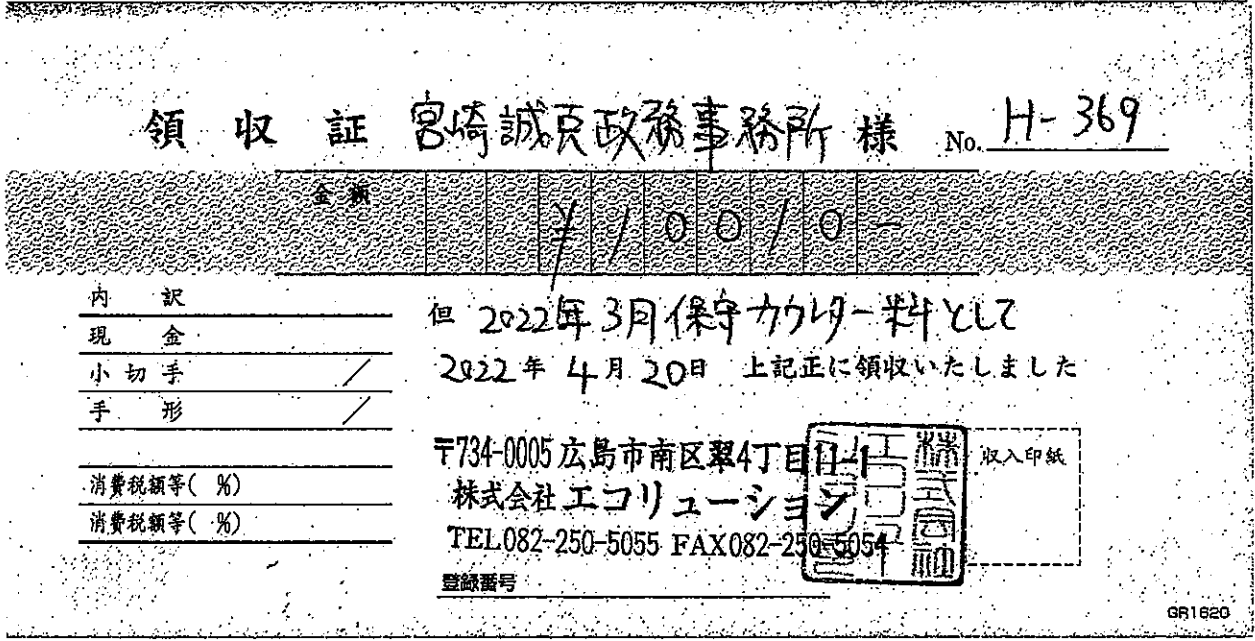 領収証 宮崎誠克政務事務所 様 No. H-369
金額 ¥10010-
内訳
現金
小切手 /
手形 /
消費税額等( %)
消費税額等( %)
但 2022年3月保守カウンター料として
2022年4月20日 上記正に領収いたしました
〒734-0005 広島市南区翠4丁目11-1
株式会社エコリューション
TEL082-250-5055 FAX082-250-5054
登録番号
収入印紙
GR1620